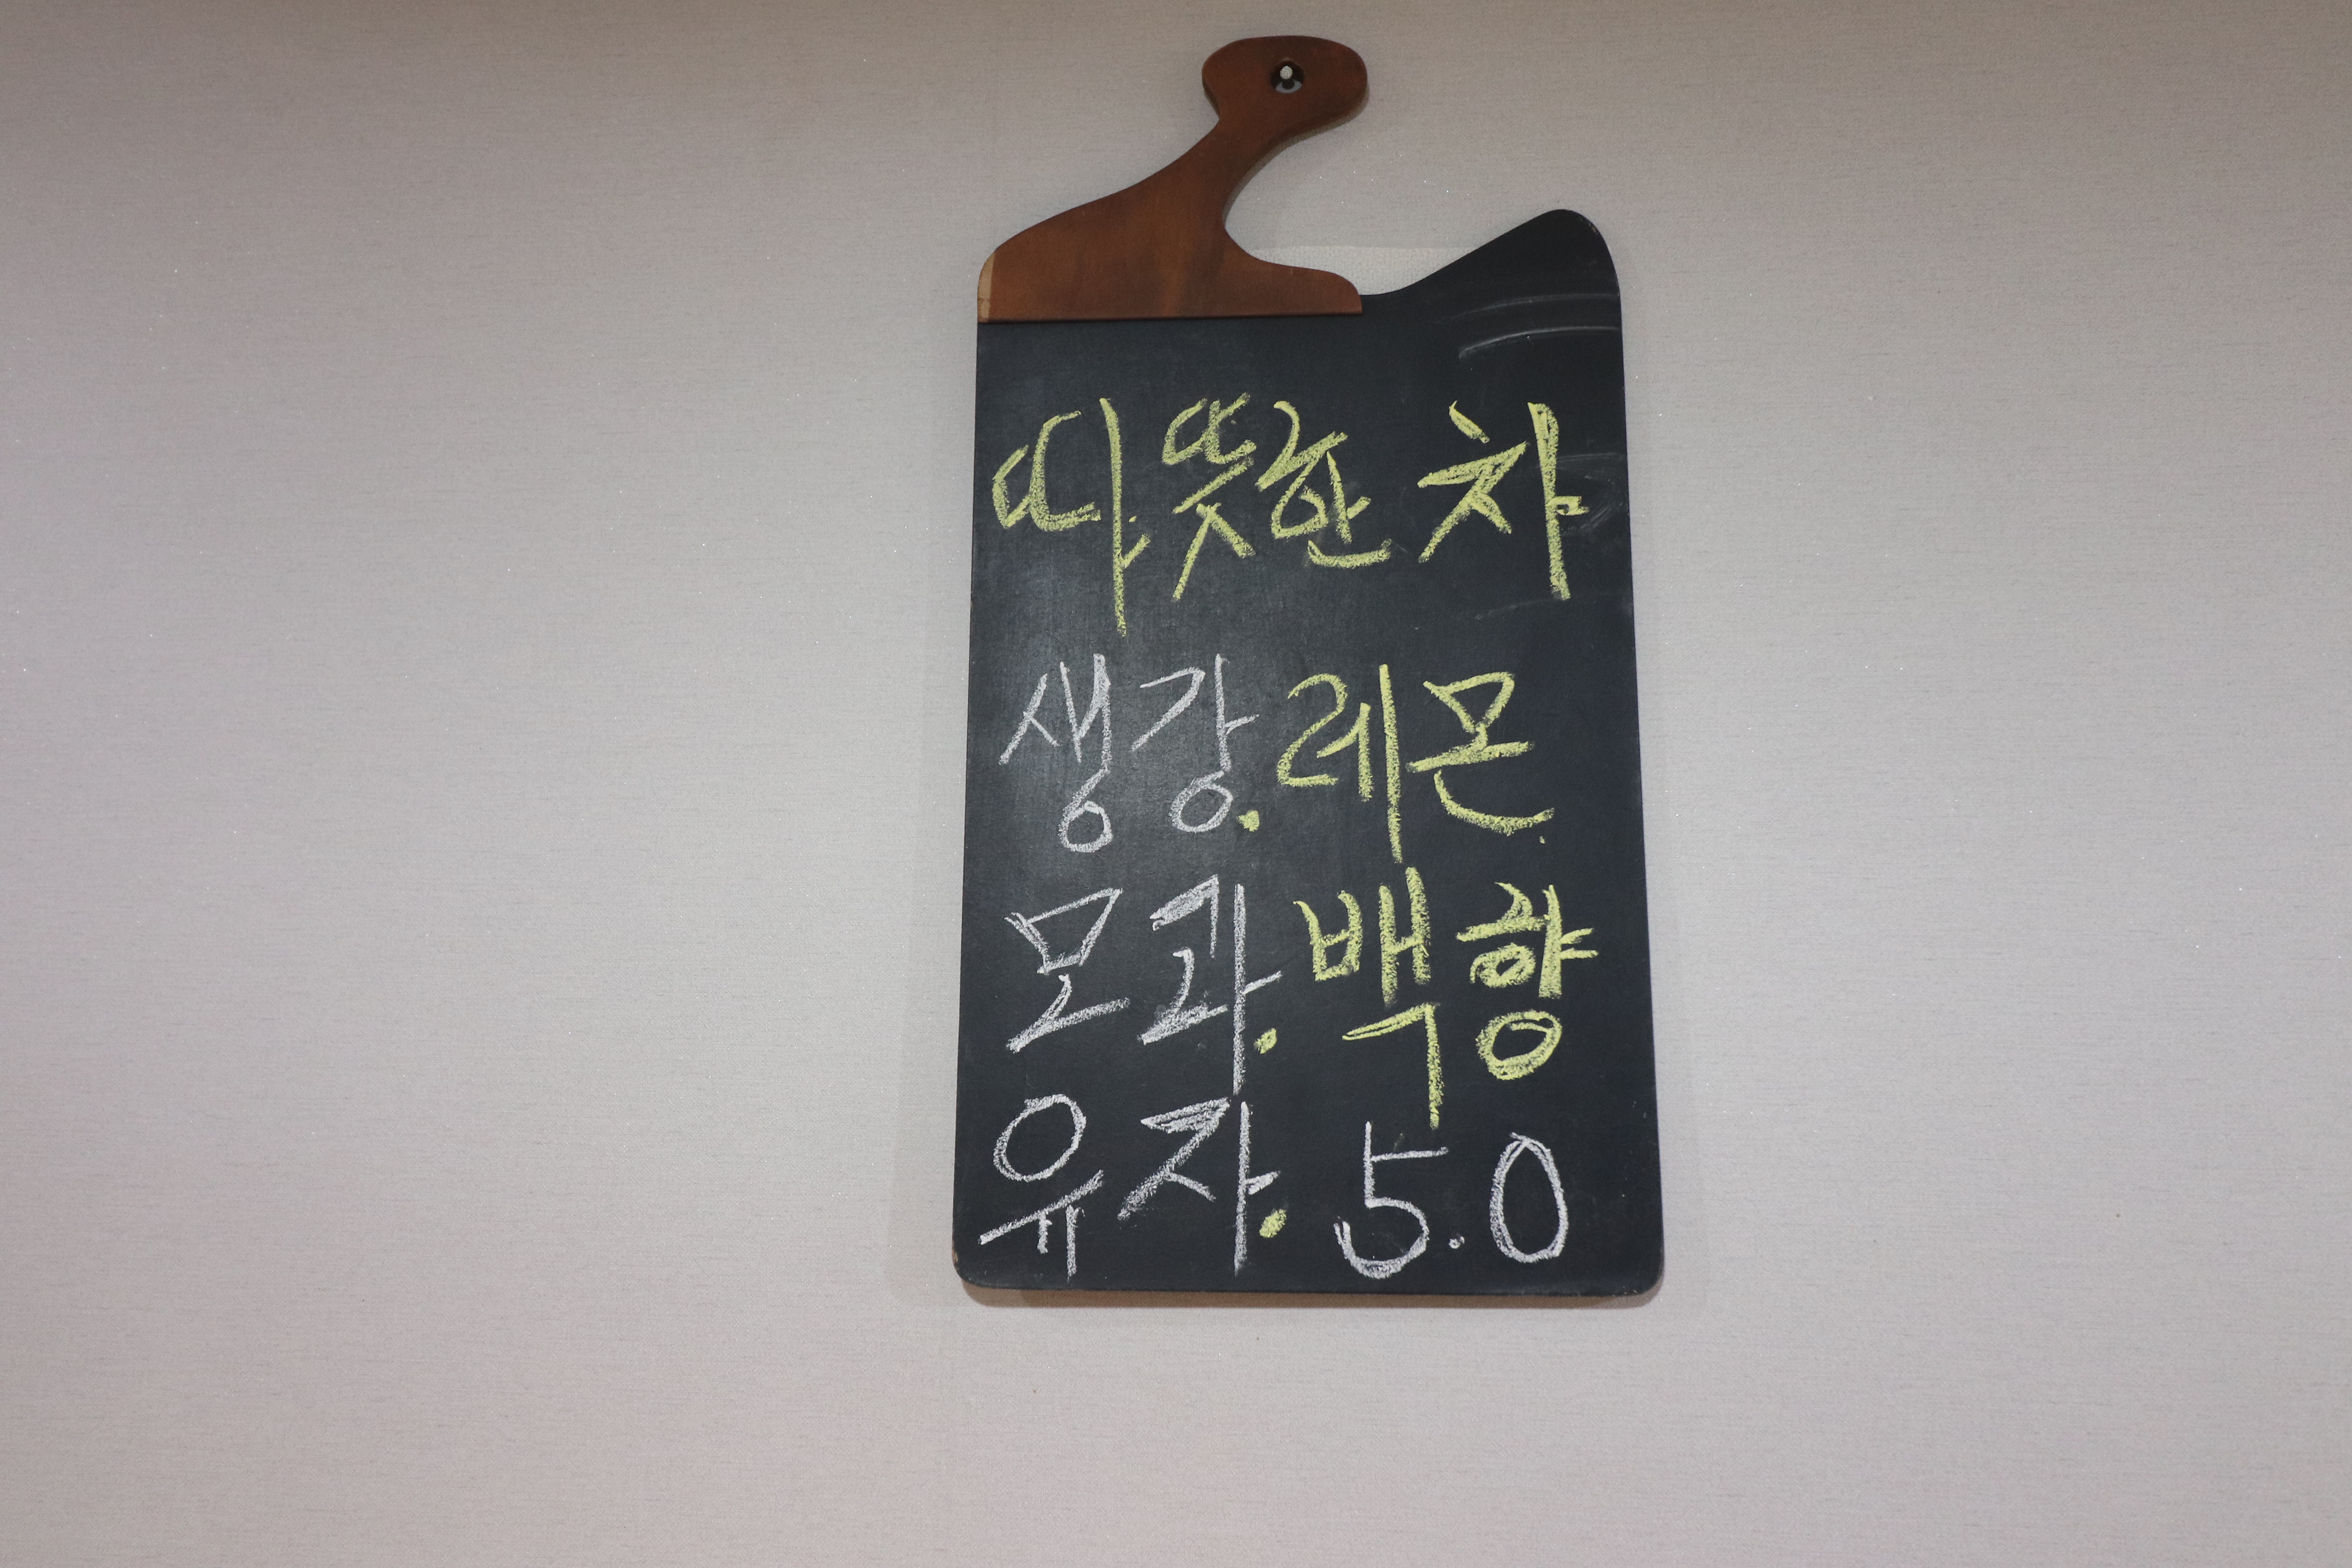 따뜻한 차
생강. 레몬.
모과. 백향
유자. 5.0